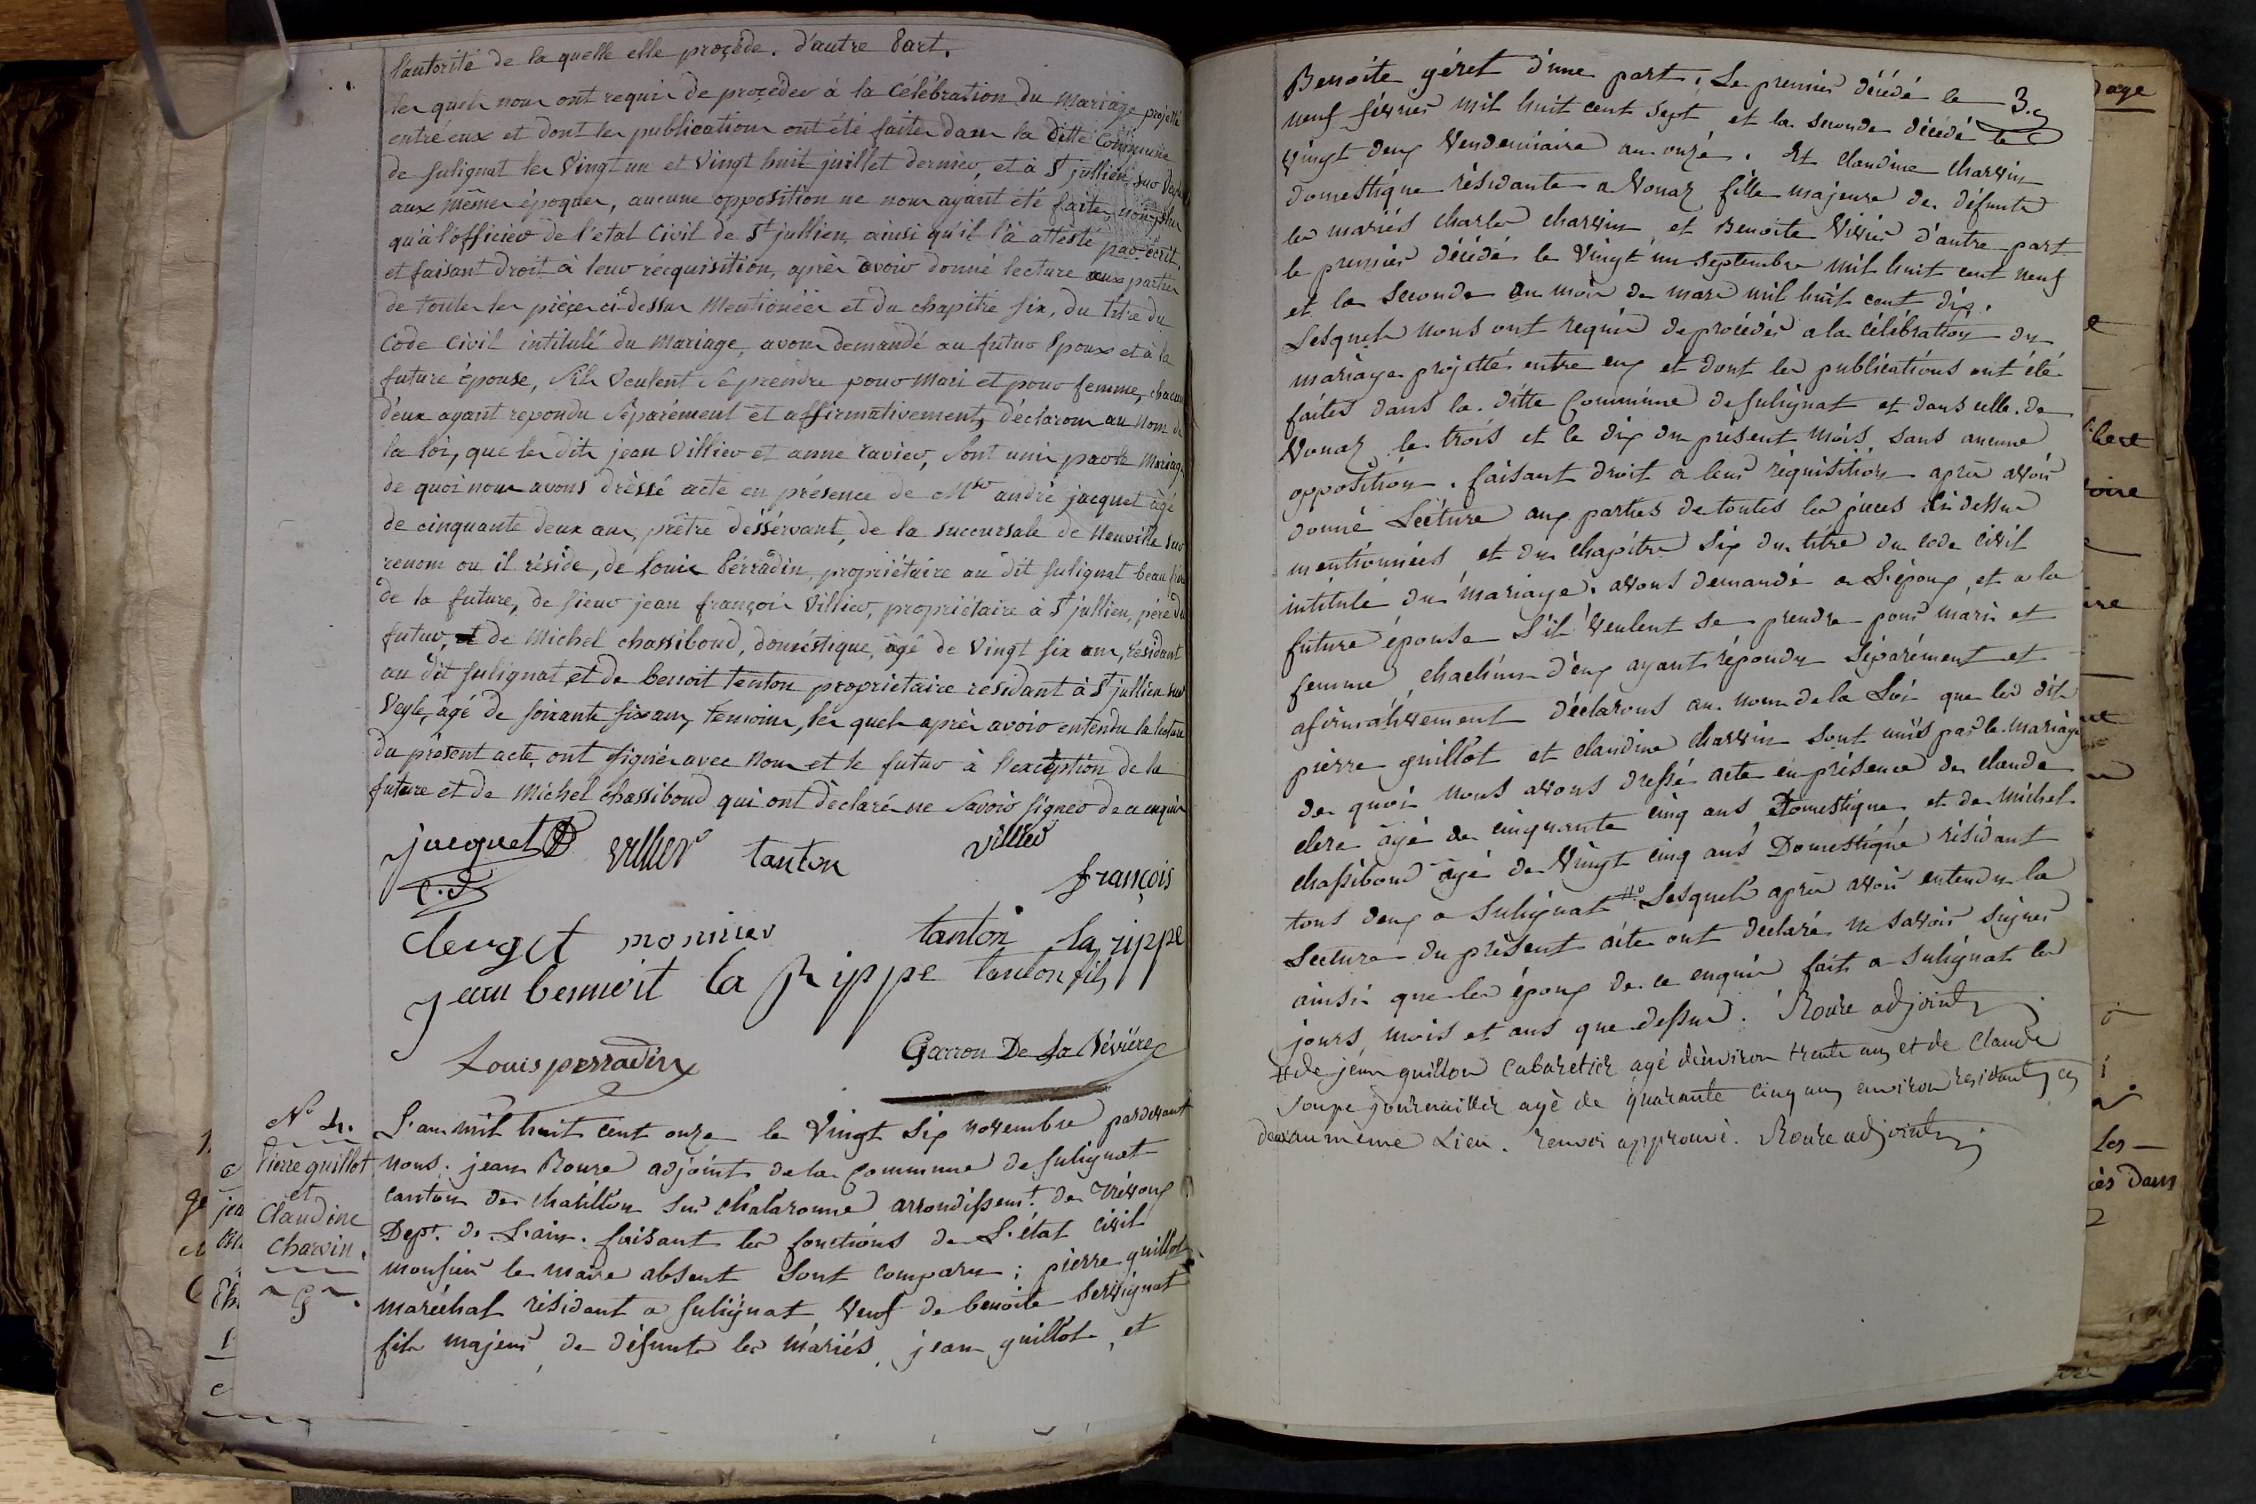 l'autorité de la quelle elle procède. d'autre Part.
les quels nous ont requis de procéder à la Célébration du Mariage projetté
entre eux et dont les publications ont été faites dans la ditte Commune
de Sulignat les Vingt un et Vingt huit juillet dernier, et à St jullien sur Veyle
aux mêmes époques, aucune opposition ne nous ayant été faite, non plus
qu'à l'officier de l'etat Civil de St jullien, ainsi qu'il l'a attesté par écrit,
et faisant droit à leur récquisition, après avoir donné lecture aux parties
de toutes les pièces ci-dessus Mentionéés et du chapitre six, du titre du
Code Civil intitulé du Mariage, avons demandé au futur Epoux et à la
future épouse, s'ils veulent se prendre pour Mari et pour femme, chacun
d'eux ayant repondu séparément et affirmativement, déclarons au Nom de
la loi, que les dits jean Villier et anne ravier, sont unis par le Mariage
de quoi nous avons dréssé acte en présence de Msr andré jacquet âgé
de cinquante deux ans, prêtre déssérvant, de la succursale de Neuville sur
renom ou il réside, de Louis bérradin, propriétaire au dit Sulignat beau frère
de la future, de sieur jean françois Villier, propriétaire à St jullien, père du
futur, et de Michel chassiboud, doméstique, âgé de Vingt six ans, résidant
au dit Sulignat et de benoit tenton propriétaire residant à St jullien sur
Veyle, âgé de soixante six ans, temoins, les quels après avoir entendu la lecture
du présent acte ont signés avec Nous et le futur à l'excéption de la
future et de Michel chassiboud qui ont déclaré ne savoir signer de ce enquis
jacquet villier tanton villier
c.d françois
clerget monnier tanton la rippe
jean bennoit la Rippe tanton fils
Louis perradin Garron De La Bévière
N° 4.
Pierre guillot
et
Claudine
Charvin.
L'an mil huit cent onze le Vingt Six novembre pardevant
nous. jean Roure adjoint de la Commune de Sulignat
canton de Chatillon sur Chalaronne arrondissemt. de Trévoux
Dept. de L'ain. faisant les fonctions de L'état civil
monsieur le maire absent sont comparu; pierre guillot
maréchal résidant a Sulignat Veuf de benoite Servignat
fils majeur de défunts les mariés jean guillot et
3.e
Benoite géret d'une part. Le premier décédé le
neuf février mil huit cent sept et la seconde décédé le
Vingt deux Vendemiaire an onze. Et Claudine Charvin
domestique résidante a Vonaz fille majeure de défunts
les mariés charles charvin et Benoite Vivier d'autre part
le premier décédé le Vingt un septembre mil huit cent neuf
et la seconde au mois de mars mil huit cent dix.
Lesquels nous ont requis de procéder a la célébration du
mariage projetté entre eux et dont les publications ont été
faites dans la ditte Commune de Sulignat et dans celle de
Vonaz le trois et le dix du présent mois sans aucune
opposition. faisant droit a leur réquisition après avoir
donné Lécture aux parties de toutes les pieces ci dessus
mentionnées et du chapitre six du titre du code civil
intitulé du mariage. avons demandé a L'époux et a la
future épouse s'il veulent se prendre pour mari et
femme chachun d'eux ayant répondu séparément et
afirmativement déclarons au nom de la Loi que les dits
pierre guillot et claudine charvin sont unis par le mariage
de quoi nous avons dressé acte en présence de claude
clere âgé de cinquante cinq ans Domestique et de michel
chassiboud âgé de Vingt cinq ans Domestique résidant
tous deux a Sulignat # Lesquels après avoir entendu la
Lecture du présent acte ont declaré ne savoir signer
ainsi que les époux de ce enquis fait a Sulignat les
jours mois et ans que dessus. Roure adjoint
# de jean guillon Cabaretier agé d'environ trente ans et de Claude
soupe journaillier agé de quarante cinq ans environ residants
deux au même Lieu. renvoi approuvé. Roure adjoint